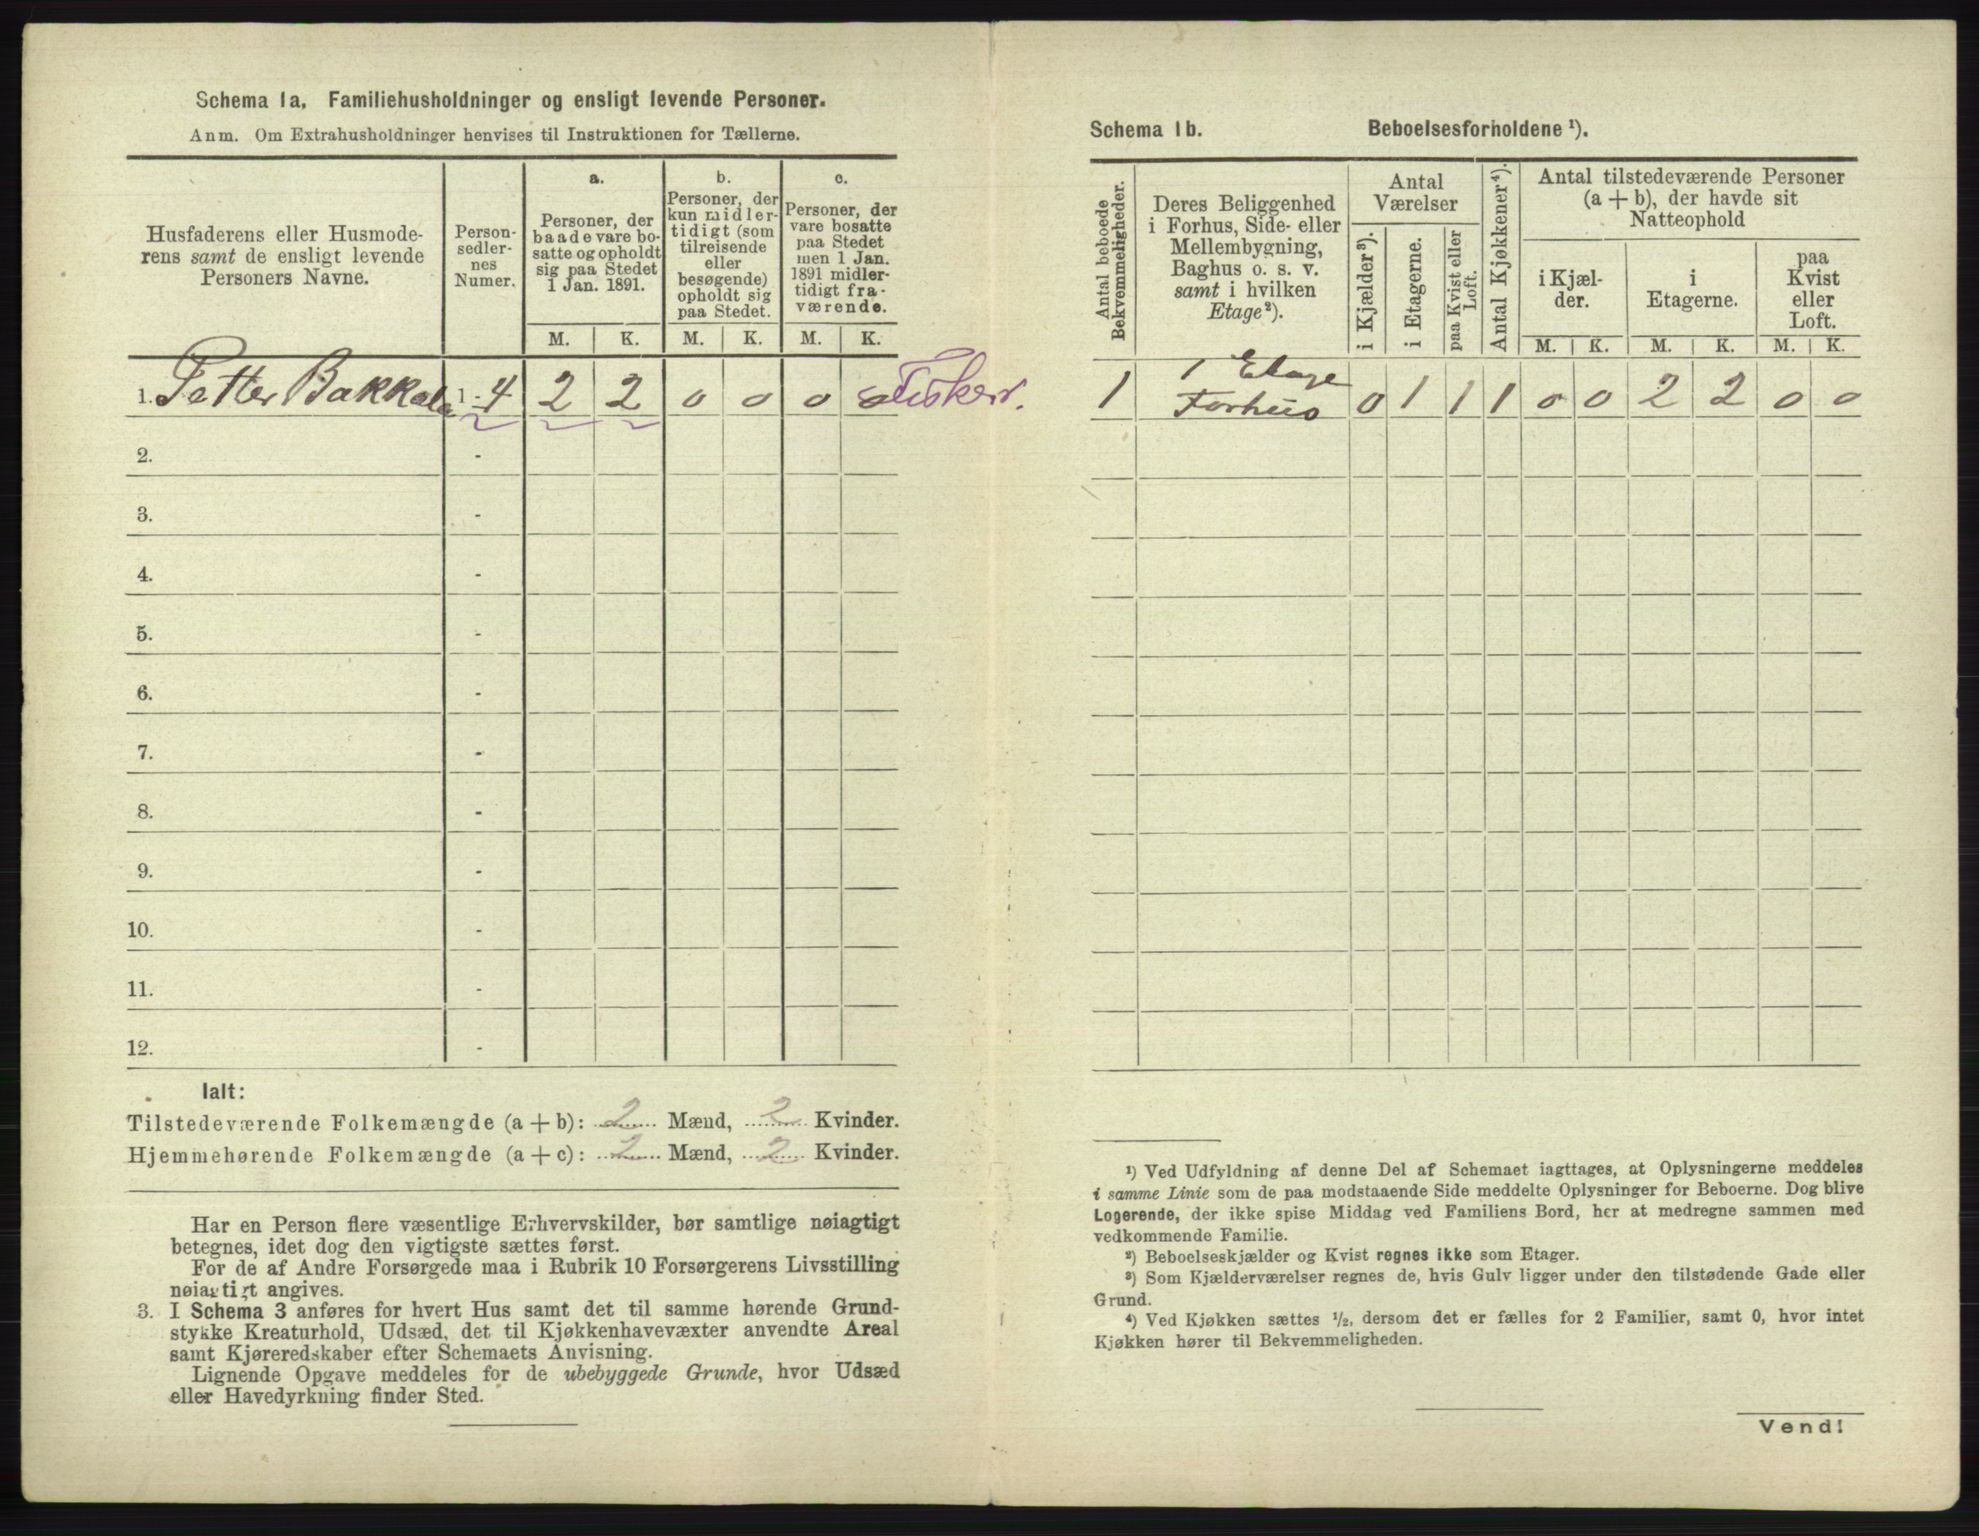 Schema 1a. Familiehusholdninger og ensligt levende Personer.
Anm. Om Extrahusholdninger henvises til Instruktionen for Tællerne.
Husfaderens eller Husmode-
rens samt de ensligt levende
Personers Navne.
Person-
sedler-
nes
Numer.
a.
Personer, der
baade vare bo-
satte og opholdt
sig paa Stedet
1 Jan. 1891.
b.
Personer, der
kun midler-
tidigt (som
tilreisende
eller
besøgende)
opholdt sig
paa Stedet.
c.
Personer, der
vare bosatte
paa Stedet
men 1 Jan.
1891 midler-
tidigt fra-
værende.
M. K. M. K. M. K.
1. Petter Bakkela 1 - 4 2 2 0 0 0 0 Fisker.
2. -
3. -
4. -
5. -
6. -
7. -
8. -
9. -
10. -
11. -
12. -
Ialt:
Tilstedeværende Folkemængde (a + b): 2 Mænd, 2 Kvinder.
Hjemmehørende Folkemængde (a + c): 2 Mænd, 2 Kvinder.
Har en Person flere væsentlige Erhvervskilder, bør samtlige nøiagtigt
betegnes, idet dog den vigtigste sættes først.
For de af Andre Forsørgede maa i Rubrik 10 Forsørgerens Livsstilling
nøiagtigt angives.
3. I Schema 3 anføres for hvert Hus samt det til samme hørende Grund-
stykke Kreaturhold, Udsæd, det til Kjøkkenhavevæxter anvendte Areal
samt Kjøreredskaber efter Schemaets Anvisning.
Lignende Opgave meddeles for de ubebyggede Grunde, hvor Udsæd
eller Havedyrkning finder Sted.
Schema 1b. Beboelsesforholdene ¹).
Antal beboede
Bekvemmeligheder.
Deres Beliggenhed
i Forhus, Side- eller
Mellembygning,
Baghus o. s. v.
samt i hvilken
Etage²).
Antal
Værelser
i Kjælder³).
i Etagerne.
paa Kvist eller
Loft.
Antal Kjøkkener⁴).
Antal tilstedeværende Personer
(a + b), der havde sit
Natteophold
i Kjæl-
der.
i
Etagerne.
paa
Kvist
eller
Loft.
M. K. M. K. M. K.
1 1 Etage
Forhus 0 1 1 1 0 0 2 2 0 0
¹) Ved Udfyldning af denne Del af Schemaet iagttages, at Oplysningerne meddeles
i samme Linie som de paa modstaaende Side meddelte Oplysninger for Beboerne. Dog blive
Logerende, der ikke spise Middag ved Familiens Bord, her at medregne sammen med
vedkommende Familie.
²) Beboelseskjælder og Kvist regnes ikke som Etager.
³) Som Kjælderværelser regnes de, hvis Gulv ligger under den tilstødende Gade eller
Grund.
⁴) Ved Kjøkken sættes ½, dersom det er fælles for 2 Familier, samt 0, hvor intet
Kjøkken hører til Bekvemmeligheden.
Vend!